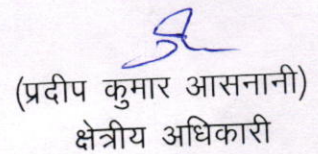 (प्रदीप कुमार आसनानी)
क्षेत्रीय अधिकारी